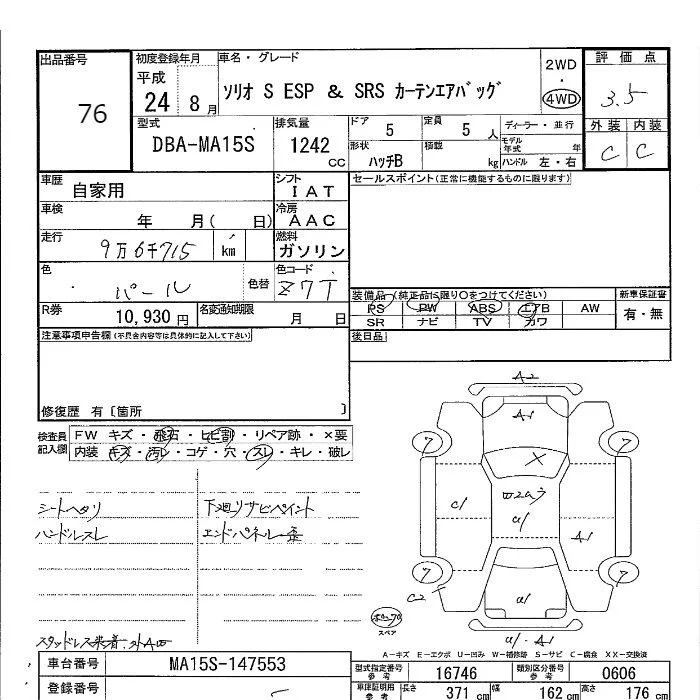 出品番号
76
初度登録年月
平成
24 8月
車名・グレード
ソリオ S ESP & SRS カーテンエアバッグ
2WD
・
4WD
評価点
3.5
外装 内装
C C
型式
DBA-MA15S
排気量
1242 CC
ドア 5
定員 5人
ディーラー・並行
形状 ハッチB
積載 kg
モデル年式 年
ハンドル 左・右
車歴 自家用
シフト IAT
セールスポイント(正常に機能するものに限ります)
車検 年 月( 日)
冷房 AAC
走行 9万6千715 km
燃料 ガソリン
色 パール
色替
色コード Z7T
装備品(純正品に限り○をつけてください)
新車保証書
PS PW ABS エアB AW
有・無
SR ナビ TV カワ
R券 10,930円
名変通知期限 月 日
後日品
注意事項申告欄(不具合内容等は具体的に記入して下さい)
修復歴 有〔箇所 〕
検査員記入欄
FW キズ・飛石・ヒビ割・リペア跡・×要
内装 キズ・汚レ・コゲ・穴・スレ・キレ・破レ
シートヘタリ 下廻リサビペイント
ハンドルスレ エンドパネル
A2
A1
7 7
X
A1
7 7
スペア
A-キズ E-エクボ U-凹み W-補修跡 S-サビ C-腐食 XX-交換済
車台番号 MA15S-147553
型式指定番号 16746
類別区分番号 0606
登録番号
車庫証明用参考
長さ 371 cm
幅 162 cm
高さ 176 cm